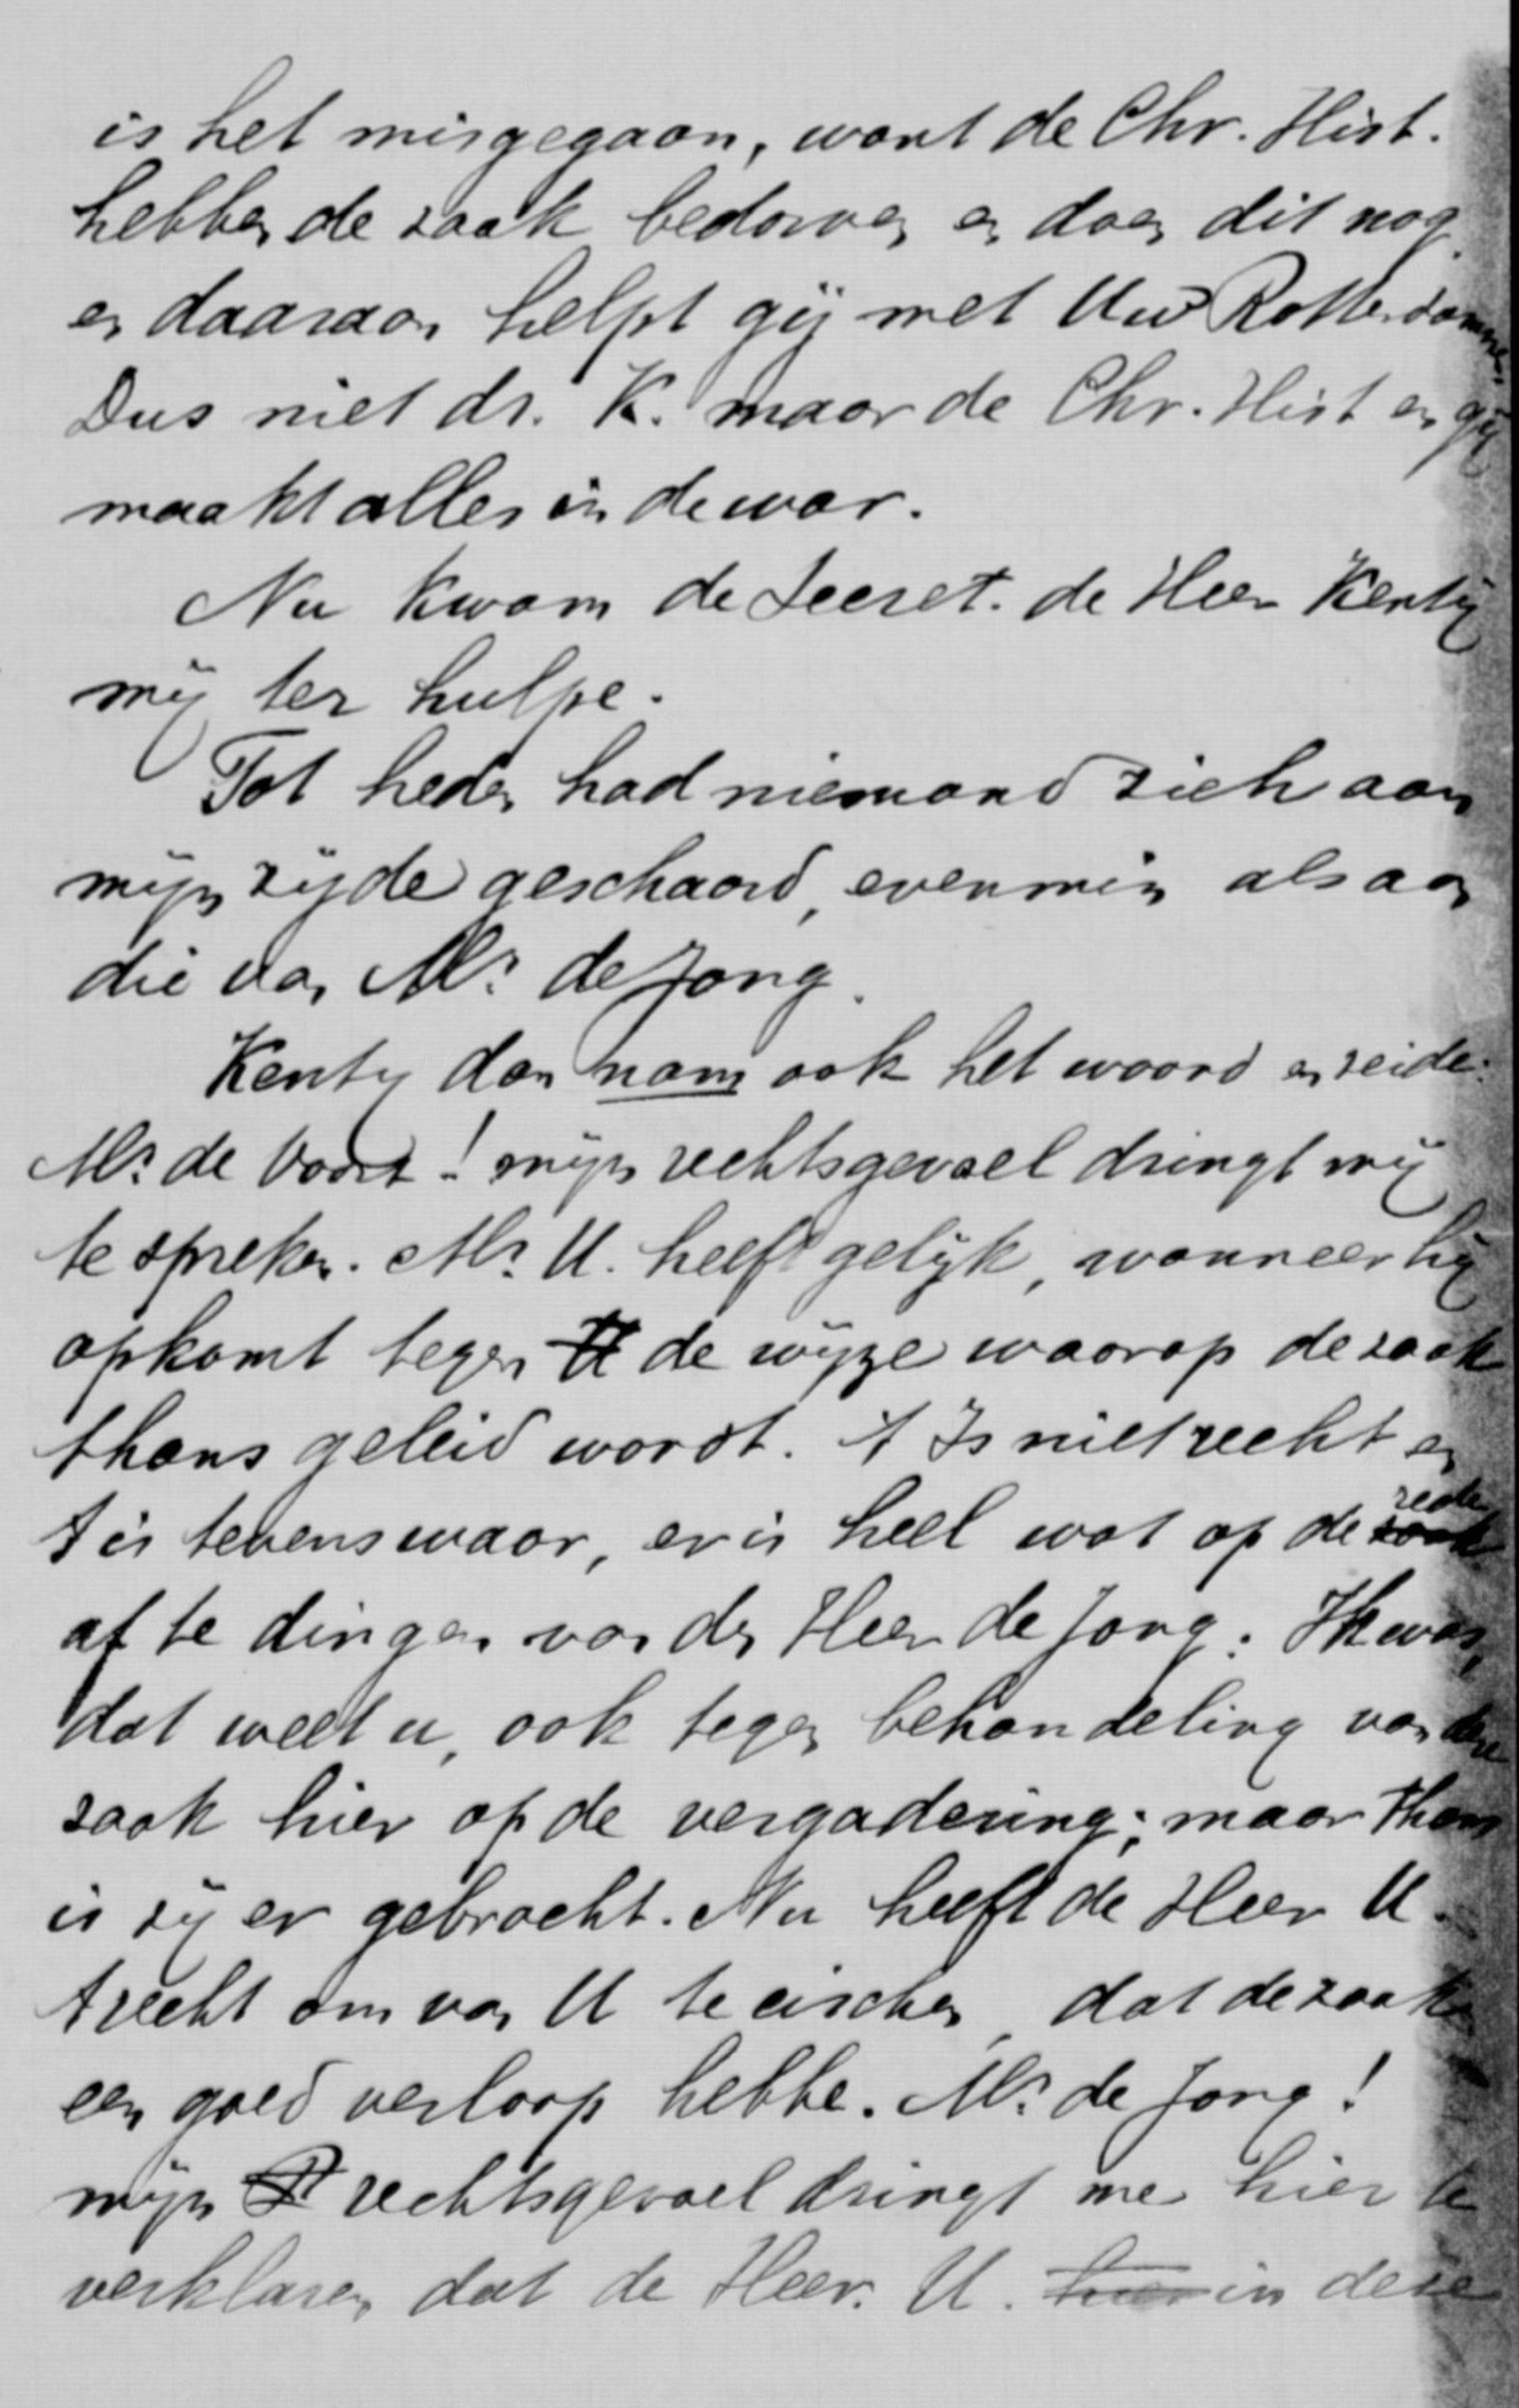 is het misgegaan, want de Chr. Hist.
hebben de zaak bedorven en doen dit nog
en daaraan helpt gij met Uw Rotterdammer,
Dus niet dr. K. maar de Chr. Hist en gij
maakt alles in de war.
Nu kwam de Secret. de Heer Kenty
mij ter hulpe.
Tot heden had niemand zich aan
mijn zijde geschaard, evenmin als aan
die van Mr. de Jong.
Kenty dan nam ook het woord en zeide:
Mr. de Voorz.! mijn rechtsgevoel dringt mij
te spreken. Mr. U. heeft gelijk, wanneer hij
opkomt tegen de wijze waarop de zaak
thans geleid wordt. 't Is niet recht en
't is tevens waar, er is heel wat op de rede
af te dingen van den Heer de Jong. Ik was,
dat weet u, ook tegen behandeling van deze
zaak hier op de vergadering; maar thans
is zij er gebracht. Nu heeft de Heer U.
't recht om van U te eischen, dat de zaak
een goed verloop hebbe. Mr. de Jong!
mijn rechtsgevoel dringt me hier te
verklaren, dat de Heer U. in deze